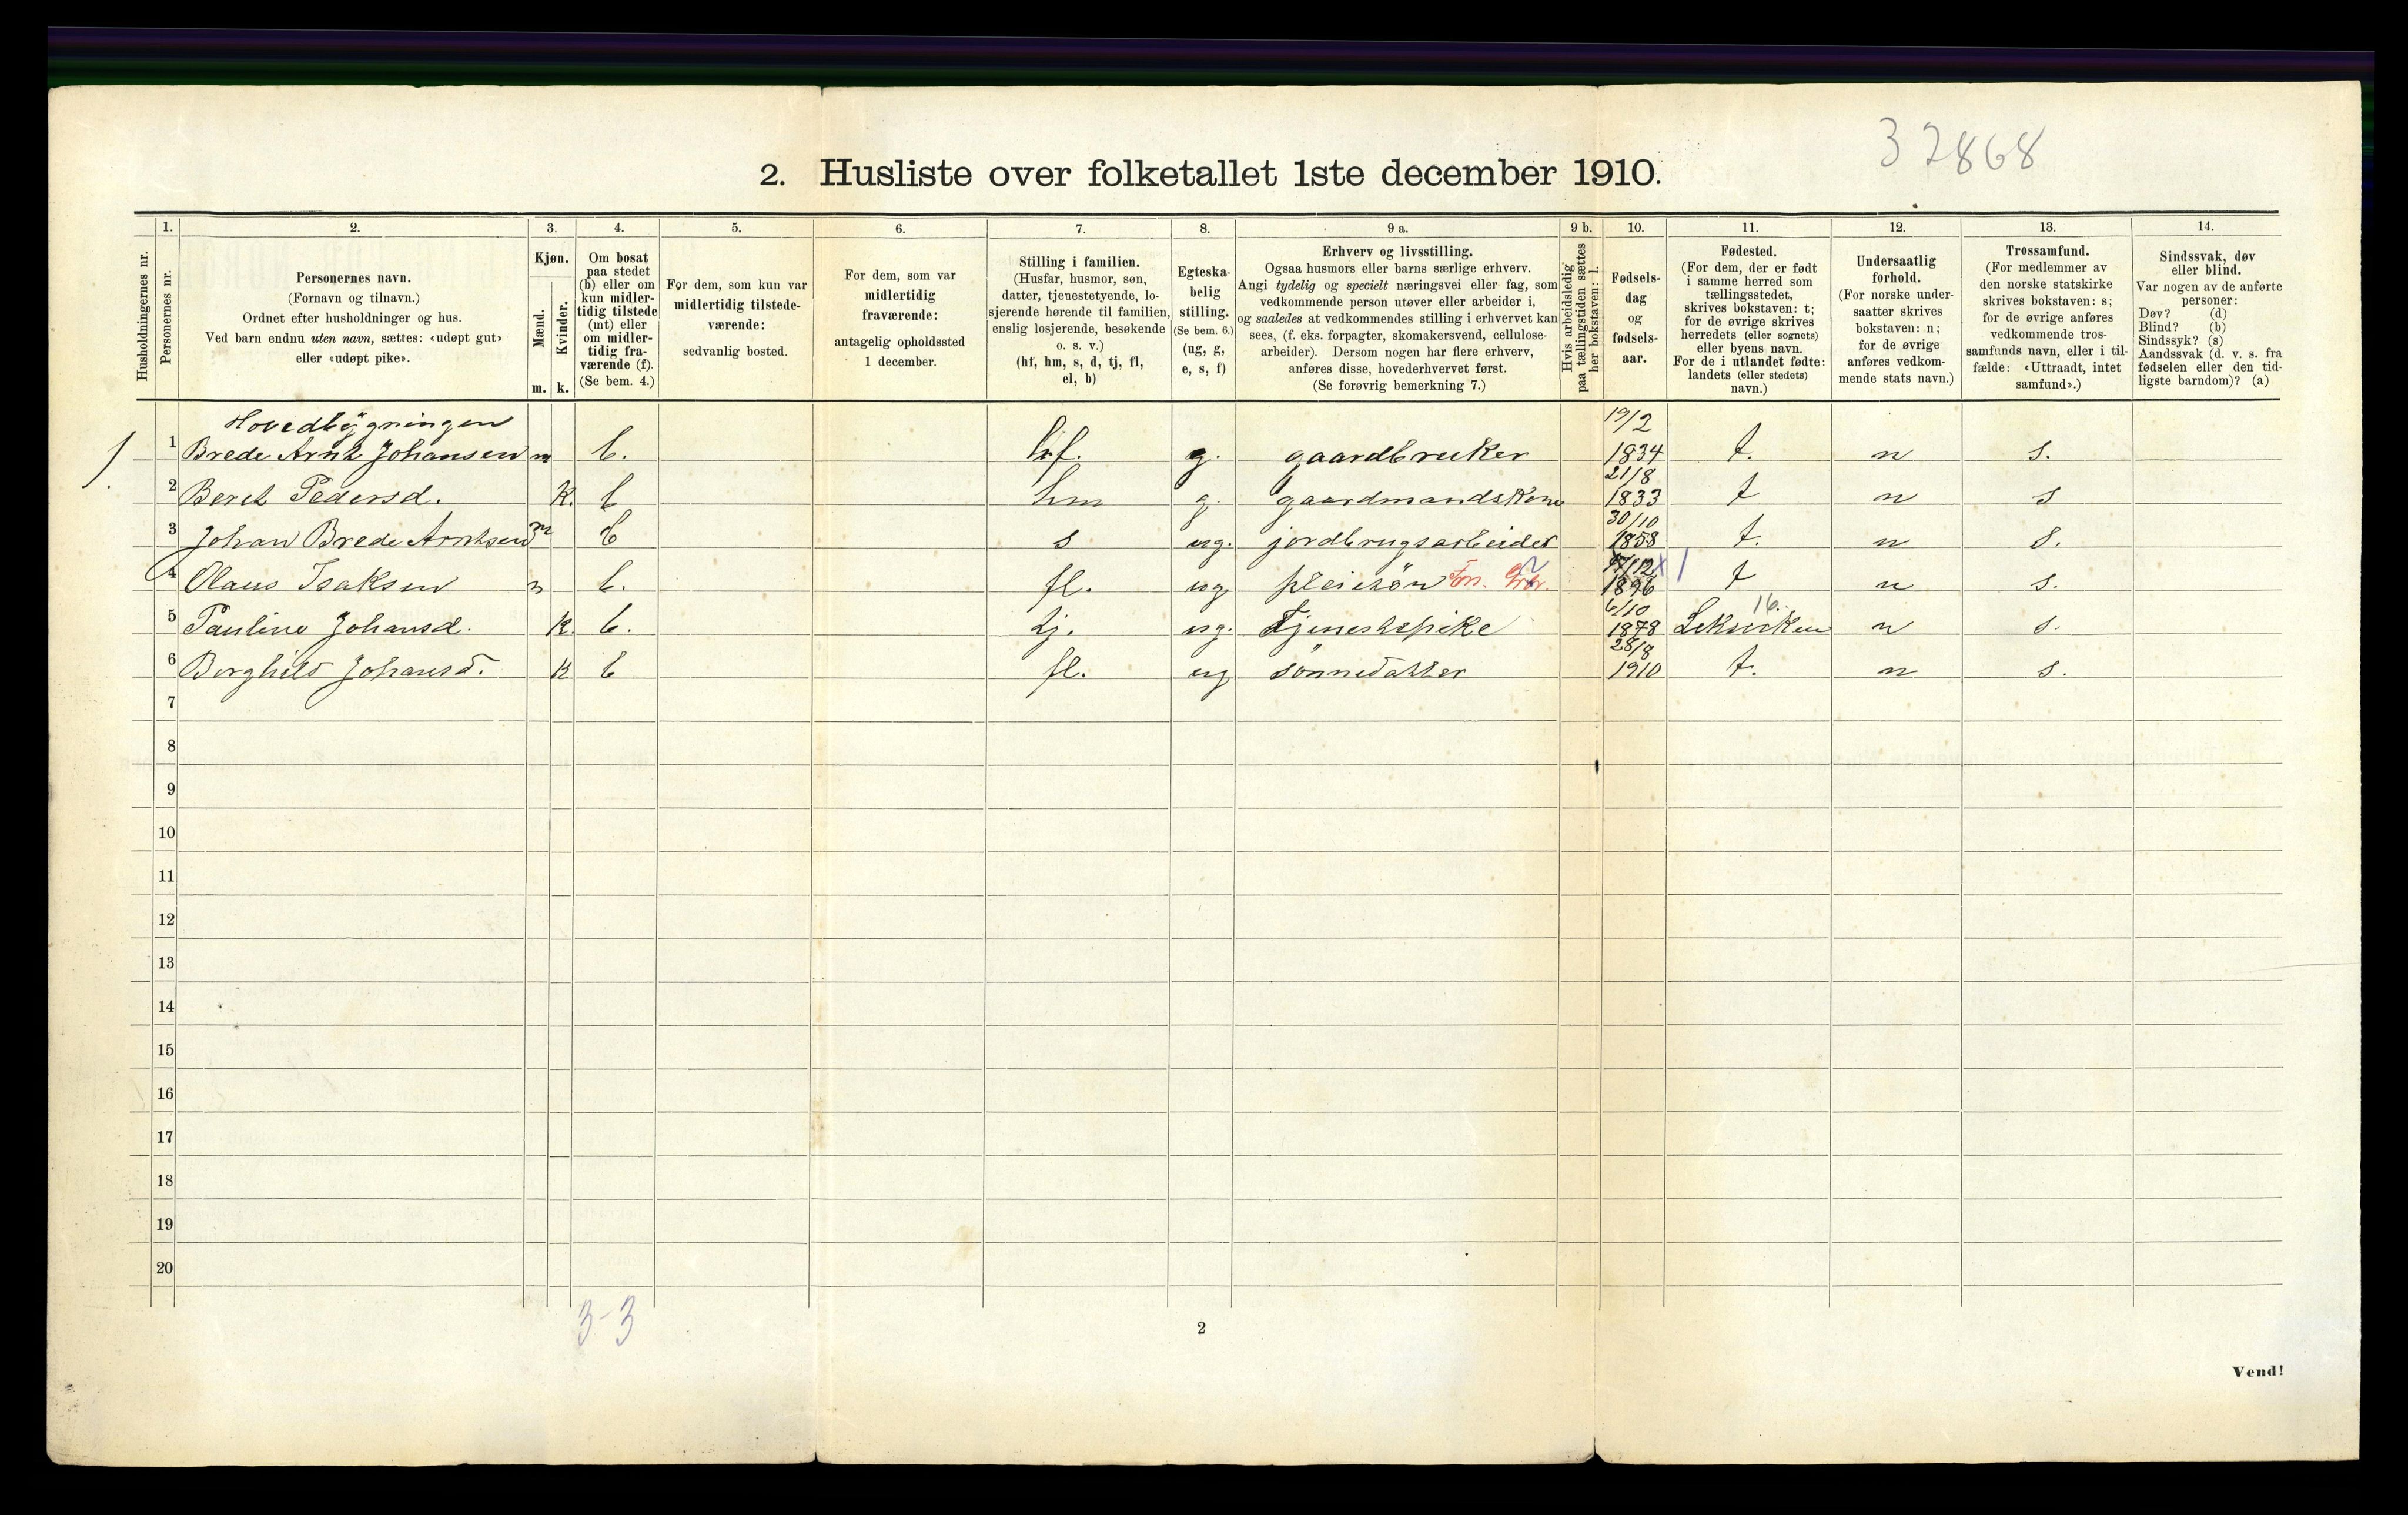 32868
2. Husliste over folketallet 1ste december 1910.
Husholdningernes nr.
1.
Personernes nr.
2.
Personernes navn.
(Fornavn og tilnavn.)
Ordnet efter husholdninger og hus.
Ved barn endnu uten navn, sættes: «udøpt gut»
eller «udøpt pike».
3.
Kjøn.
Mænd.
Kvinder.
m. k.
4.
Om bosat
paa stedet
(b) eller om
kun midler-
tidig tilstede
(mt) eller
om midler-
tidig fra-
værende (f).
(Se bem. 4.)
5.
For dem, som kun var
midlertidig tilstede-
værende:
sedvanlig bosted.
6.
For dem, som var
midlertidig
fraværende:
antagelig opholdssted
1 december.
7.
Stilling i familien.
(Husfar, husmor, søn,
datter, tjenestetyende, lo-
sjerende hørende til familien,
enslig losjerende, besøkende
o. s. v.)
(hf, hm, s, d, tj, fl,
el, b)
8.
Egteska-
belig
stilling.
(Se bem. 6.)
(ug, g,
e, s, f)
9 a.
Erhverv og livsstilling.
Ogsaa husmors eller barns særlige erhverv.
Angi tydelig og specielt næringsvei eller fag, som
vedkommende person utøver eller arbeider i,
og saaledes at vedkommendes stilling i erhvervet kan
sees, (f. eks. forpagter, skomakersvend, cellulose-
arbeider). Dersom nogen har flere erhverv,
anføres disse, hovederhvervet først.
(Se forøvrig bemerkning 7.)
9 b.
Hvis arbeidsledig
paa tællingstiden sættes
her bokstaven: l.
10.
Fødsels-
dag
og
fødsels-
aar.
11.
Fødested.
(For dem, der er født
i samme herred som
tællingsstedet,
skrives bokstaven: t;
for de øvrige skrives
herredets (eller sognets)
eller byens navn.
For de i utlandet fødte:
landets (eller stedets)
navn.)
12.
Undersaatlig
forhold.
(For norske under-
saatter skrives
bokstaven: n;
for de øvrige
anføres vedkom-
mende stats navn.)
13.
Trossamfund.
(For medlemmer av
den norske statskirke
skrives bokstaven: s;
for de øvrige anføres
vedkommende tros-
samfunds navn, eller i til-
fælde: «Uttraadt, intet
samfund».)
14.
Sindssvak, døv
eller blind.
Var nogen av de anførte
personer:
Døv? (d)
Blind? (b)
Sindssyk? (s)
Aandssvak (d. v. s. fra
fødselen eller den tid-
ligste barndom)? (a)
Hovedbygningen
1 1 Brede Arnt Johansen m b. hf. g. gaardbruker 19/2 1834 t. n s.
2 Beret Pedersd. k. b hm g. gaardmandskone 21/8 1833 t n s
3 Johan Brede Arntsen m b s ug. jordbrugsarbeider 30/10 1858 t. n s.
4 Olaus Isaksen m b. fl. ug pleiesön 1896 t n s.
5 Pauline Johansd. k. b. tj. ug. Tjenestepike 6/10 1878 Leksviken 16. n s.
6 Borghild Johansd. k b fl. ug sönnedatter 28/8 1910 t. n s.
7
8
9
10
11
12
13
14
15
16
17
18
19
20
3-3
2
Vend!